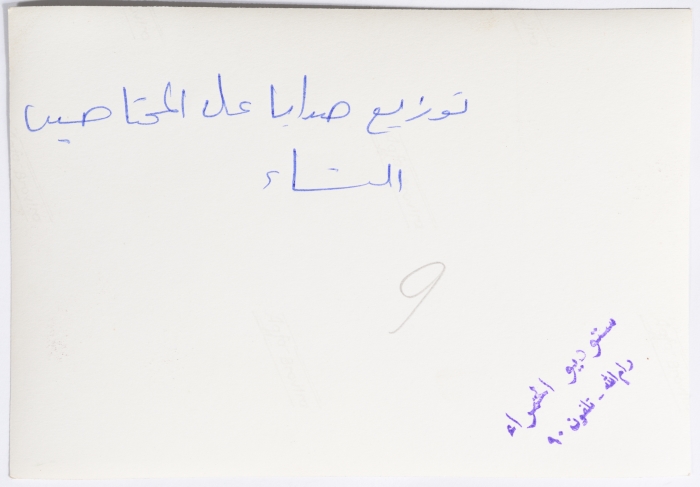 توزيع هدايا على المحتاجين
9
ستوديو الحمراء
رام الله - تلفون ٩٠